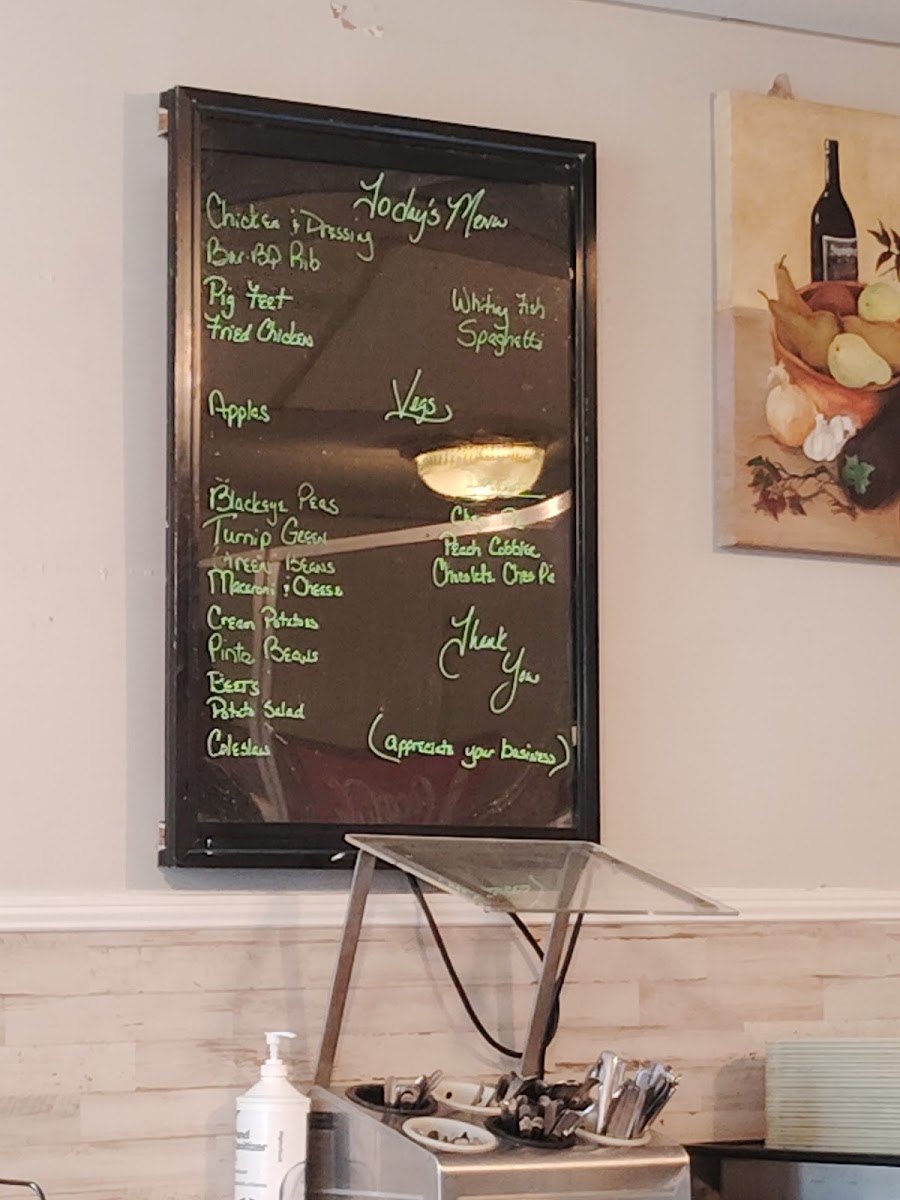 Today's Menu
Chicken & Dressing
Bar-BQ Rib
Pig Feet
Fried Chicken
Whiting Fish
Spaghetti
Vegs
Apples
Blackeye Peas
Turnip Green
Green Beans
Macaroni & Cheese
Cream Potatoes
Pinto Beans
Beets
Potato Salad
Coleslaw
Peach Cobbler
Chocolate Ches Pie
Thank
You
(appreciate your business)